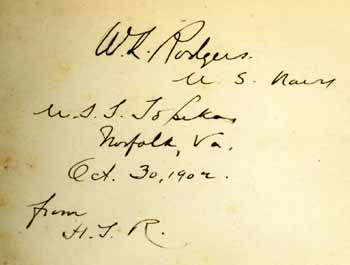 W. L. Rodgers.
U. S. Navy
U. S. S. Topeka
Norfolk, Va.
Oct. 30, 1902.
from
H. S. R.